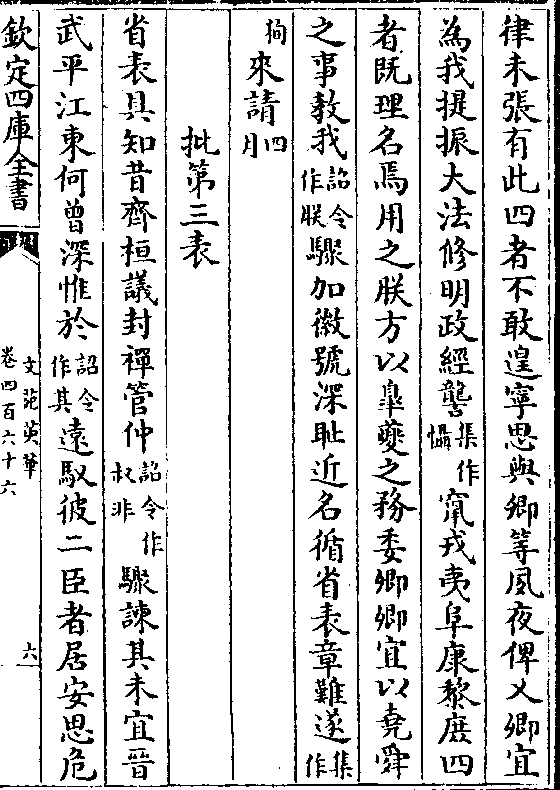 律未張有此四者不敢遑寧思與卿等夙夜俾乂卿宜
為我提振大法修明政經讋集作慴竄戎夷阜康黎庶四
者既理名焉用之朕方以臯夔之務委卿卿宜以堯舜
之事教我詔令作朕驟加徽號深耻近名循省表章難遂集作
徇來請四月
批第三表
省表具知昔齊桓議封禪管仲詔令作叔非驟諫其未宜晉
武平江東何曾深惟於詔令作其遠馭彼二臣者居安思危
欽定四庫全書
文苑英華
卷四百六十六
六